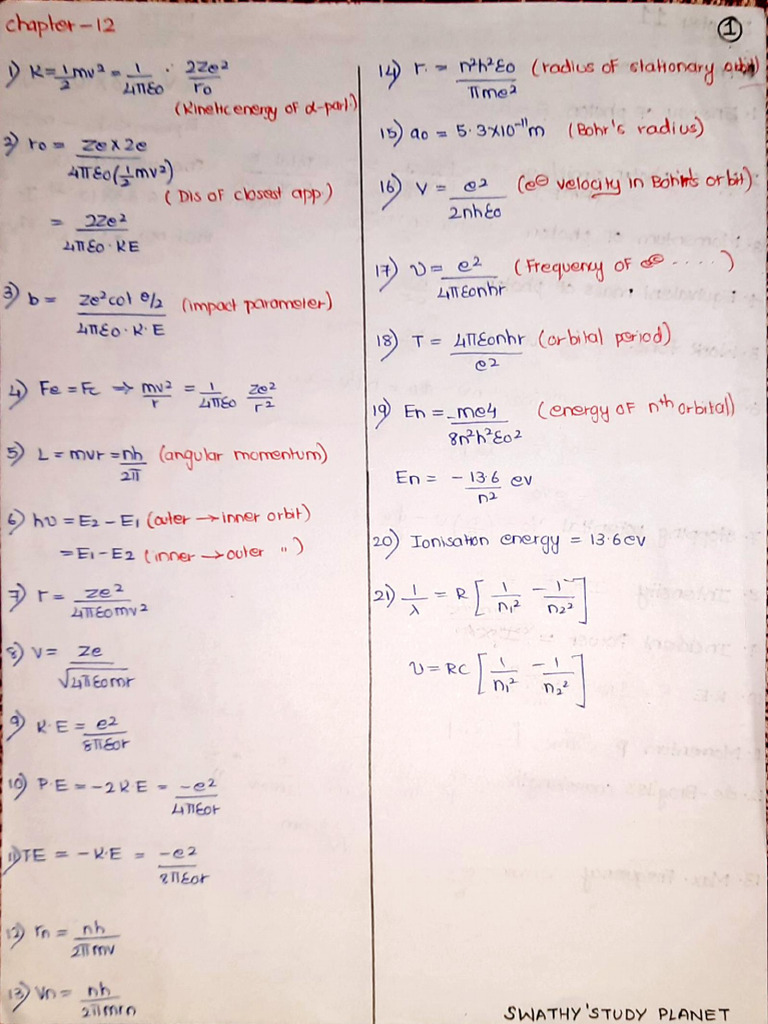 chapter-12
①
1) K = 1/2 mv² = 1/4πε0 · 2Ze²/r0
(Kinetic energy of α-part.)
2) r0 = Ze×2e / 4πε0(1/2 mv²)
(Dis of closest app)
= 2Ze² / 4πε0·KE
3) b = Ze² cot θ/2 / 4πε0·K·E (impact parameter)
4) Fe = Fc ⇒ mv²/r = 1/4πε0 Ze²/r²
5) L = mvr = nh/2π (angular momentum)
6) hυ = E2 - E1 (outer → inner orbit)
= E1 - E2 (inner → outer ")
7) r = Ze² / 4πε0mv²
8) V = Ze / √4πε0mr
9) K·E = e² / 8πε0r
10) P·E = -2KE = -e² / 4πε0r
11) TE = -K·E = -e² / 8πε0r
12) rn = nh / 2πmv
13) Vn = nh / 2πmrn
14) r = n²h²ε0 / πme² (radius of stationary orbit)
15) a0 = 5·3×10⁻¹¹m (Bohr's radius)
16) V = e² / 2nhε0 (e⊖ velocity in Bohr's orbit)
17) υ = e² / 4πε0nhr (Frequency of e⊖ ·····)
18) T = 4πε0nhr / e² (orbital period)
19) En = -me4 / 8n²h²ε0² (energy of nth orbital)
En = -13·6 / n² ev
20) Ionisation energy = 13·6ev
21) 1/λ = R [1/n1² - 1/n2²]
υ = RC [1/n1² - 1/n2²]
SWATHY'STUDY PLANET